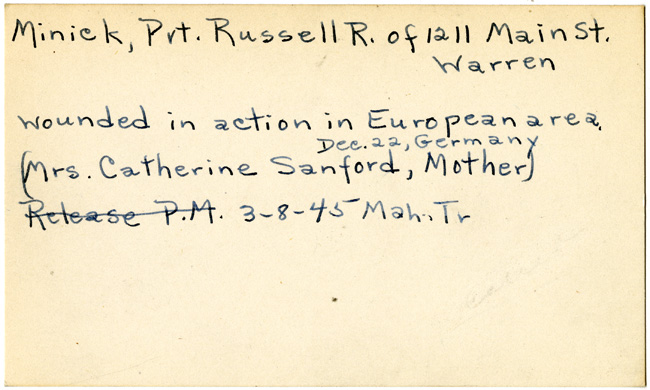 Minick, Pvt. Russell R. of 1211 Main St.
Warren
wounded in action in European area.
Dec. 22, Germany
(Mrs. Catherine Sanford, Mother)
Release P.M. 3-8-45 Mah. Tr